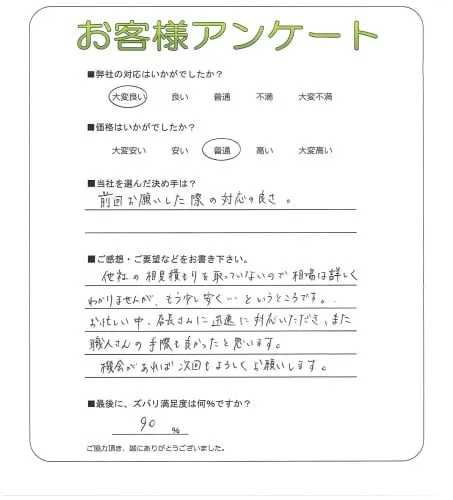 お客様アンケート
■弊社の対応はいかがでしたか？
大変良い 良い 普通 不満 大変不満
■価格はいかがでしたか？
大変安い 安い 普通 高い 大変高い
■当社を選んだ決め手は？
前回お願いした際の対応の良さ。
■ご感想・ご要望などをお書き下さい。
他社の相見積もりを取っていないので相場は詳しく
わかりませんが、もう少し安く…というところです。
お忙しい中、店長さんに迅速に対応いただき、また
職人さんの手際も良かったと思います。
機会があれば次回もよろしくお願いします。
■最後に、ズバリ満足度は何%ですか？
90 %
ご協力頂き、誠にありがとうございました。